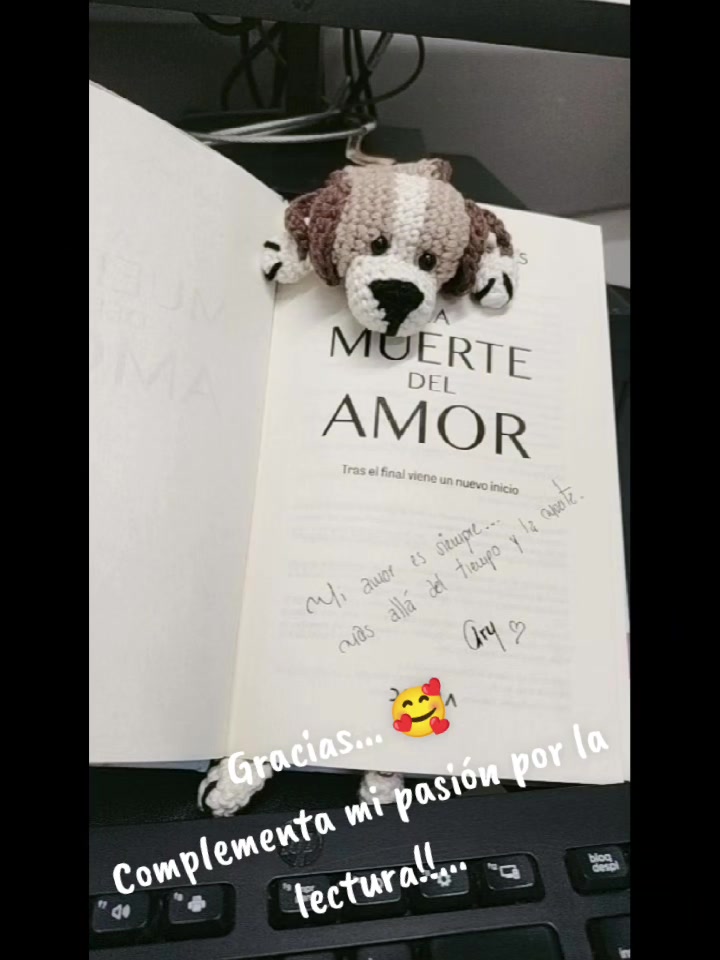 MUERTE
DEL
AMOR
Tras el final viene un nuevo inicio
Mi amor es siempre...
más allá del tiempo y la
Ary ♡
Gracias... 🥰
Complementa mi pasión por la
lectura!!...
bloq
despl